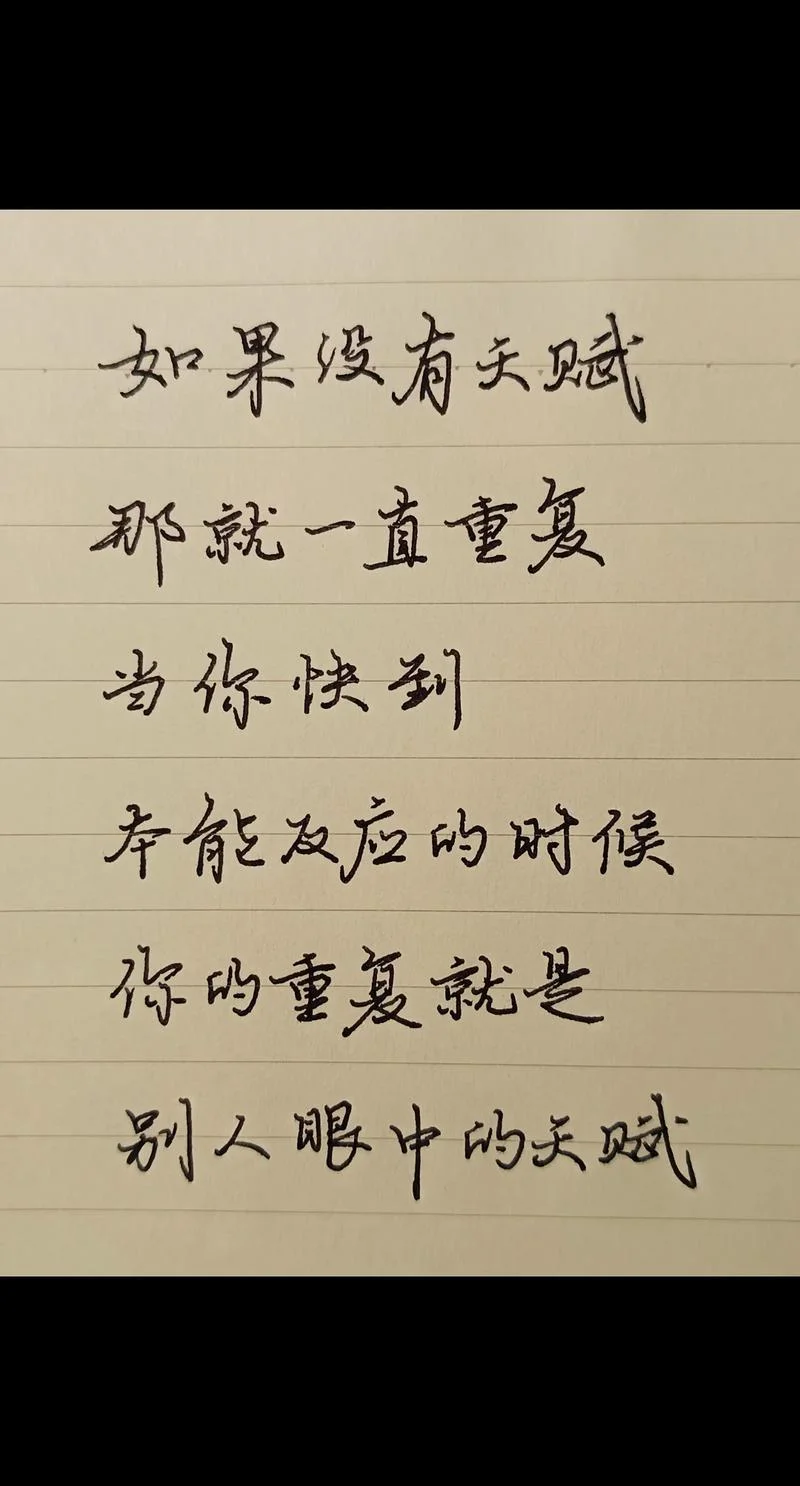 如果没有天赋
那就一直重复
当你快到
本能反应的时候
你的重复就是
别人眼中的天赋